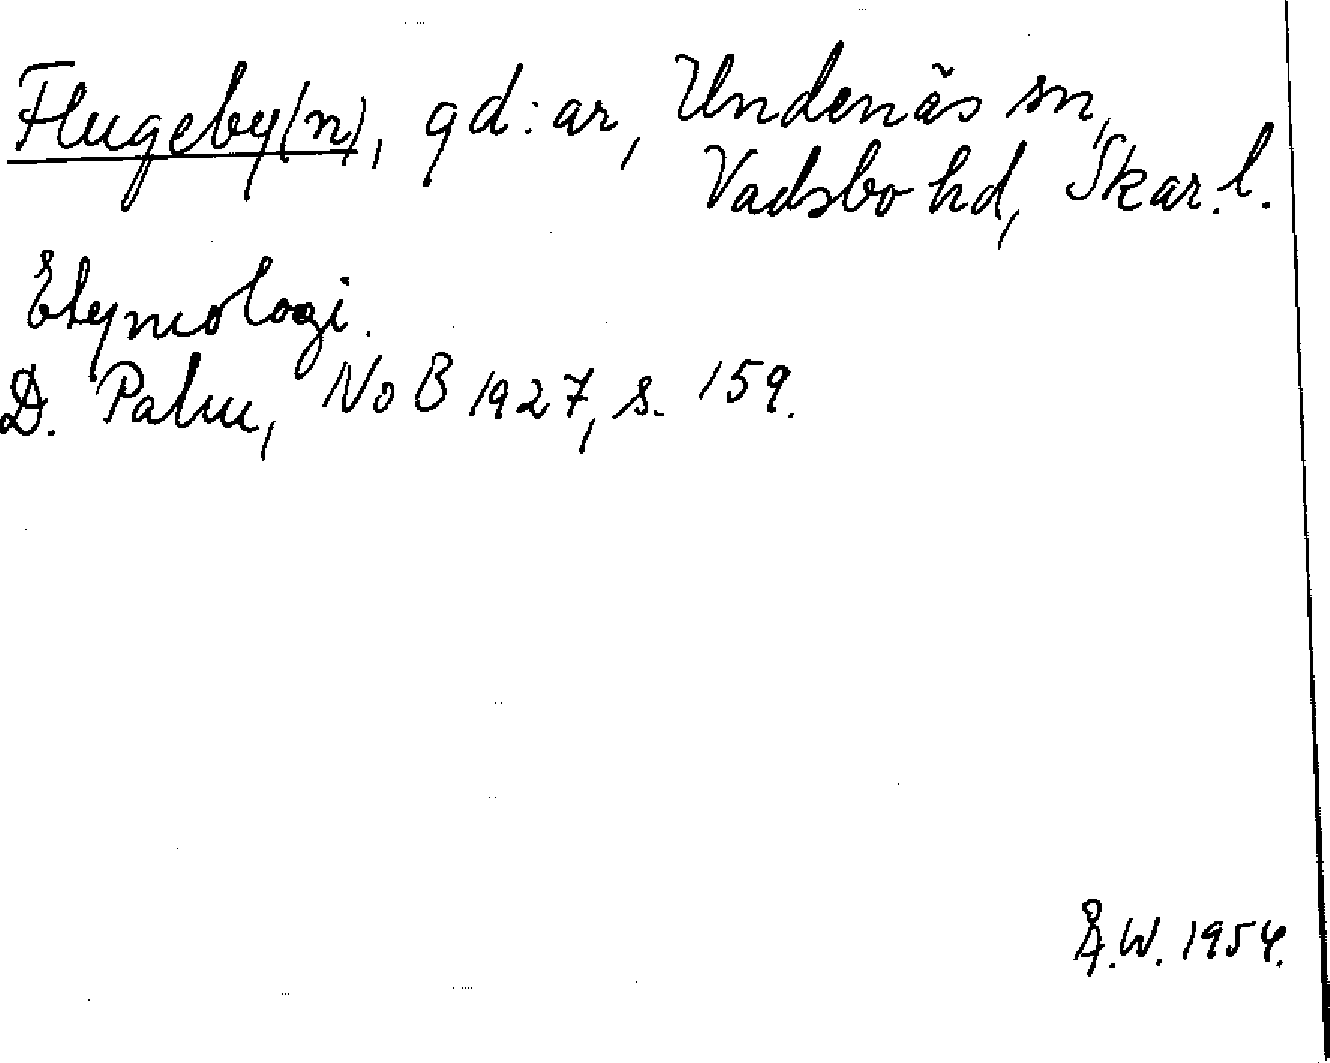 Flugeby(n), gd:ar, Undenäs sn,
Vadsbo hd, Skar. l.
Etymologi.
D. Palm, NoB 1927, s. 159.
Å.W. 1954.